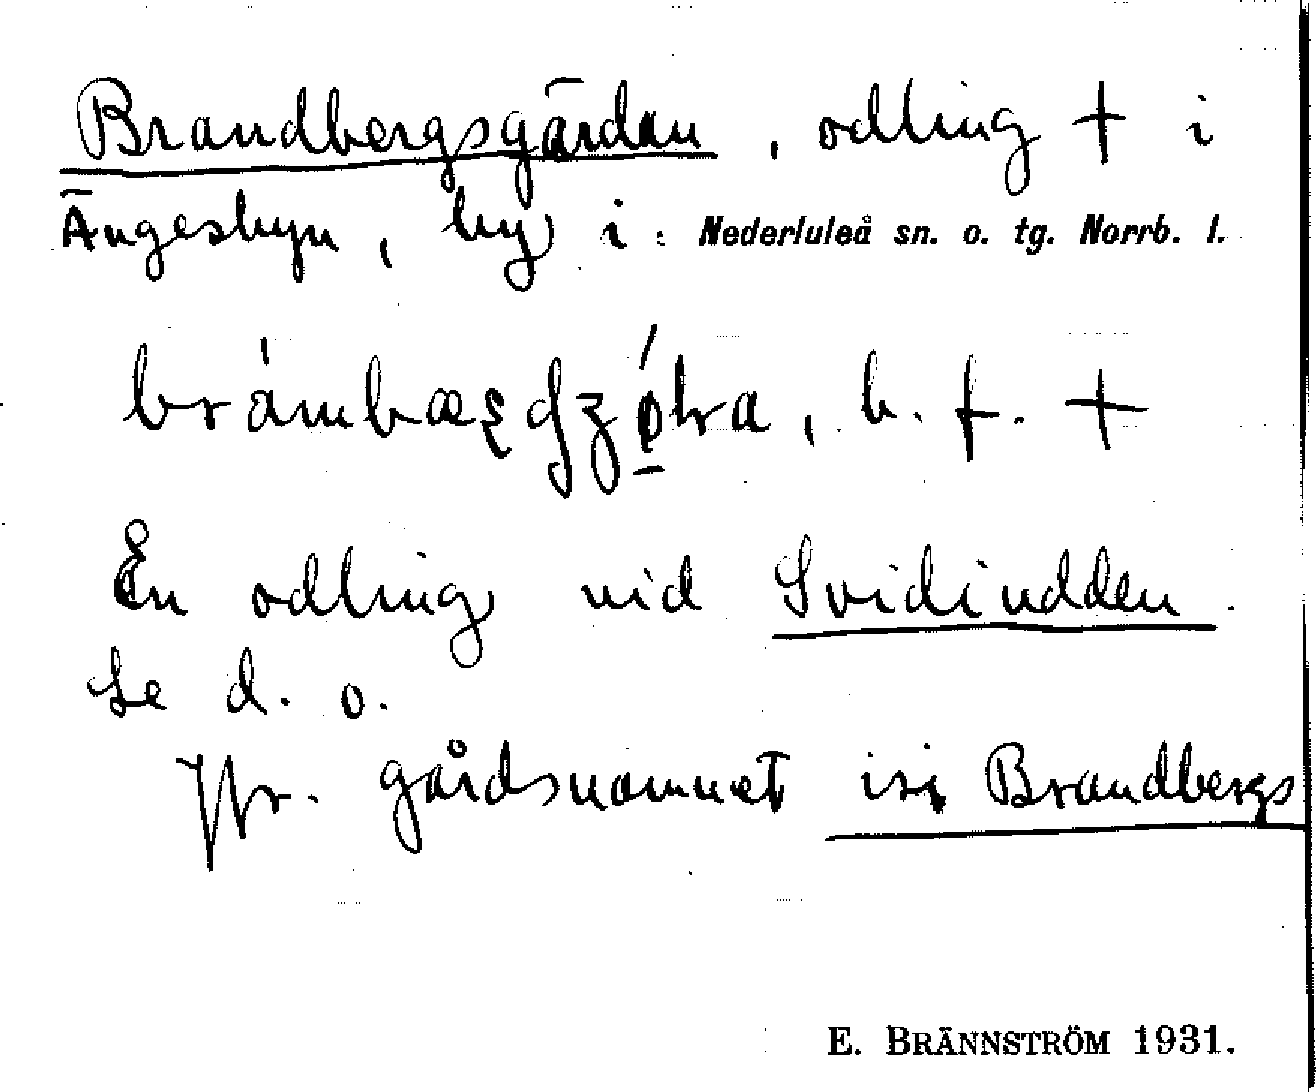 Brandbergsgärdan, odling + i
Ängesbyn, by i Nederluleå sn. o. tg. Norrb. l.
b. f. +
En odling vid Svidiudden.
Se d. o.
Jfr. gårdsnamnet Brandbergs
E. BRÄNNSTRÖM 1931.